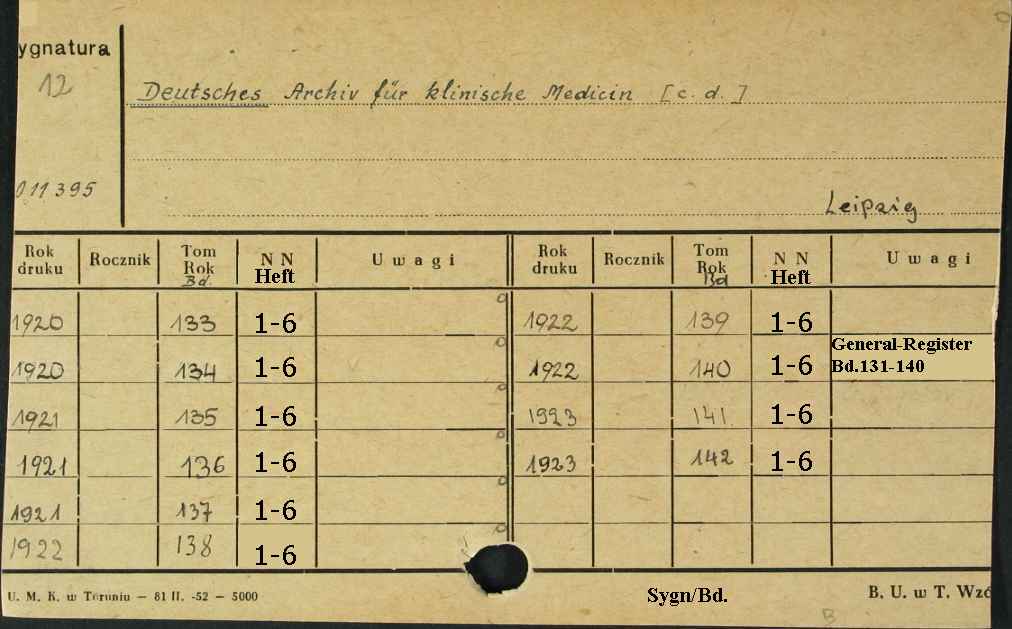 ygnatura
12
Deutsches Archiv für klinische Medicin [c. d.]
011395
Leipzig
Rok druku Rocznik Tom Rok Bd. N N Heft Uwagi Rok druku Rocznik Tom Rok Bd N N Heft Uwagi
1920 133 1-6 1922 139 1-6
1920 134 1-6 1922 140 1-6 General-Register Bd.131-140
1921 135 1-6 1923 141 1-6
1921 136 1-6 1923 142 1-6
1921 137 1-6
1922 138 1-6
U. M. K. w Toruniu — 81 II. -52 — 5000 Sygn/Bd. B. U. w T. Wzó
B